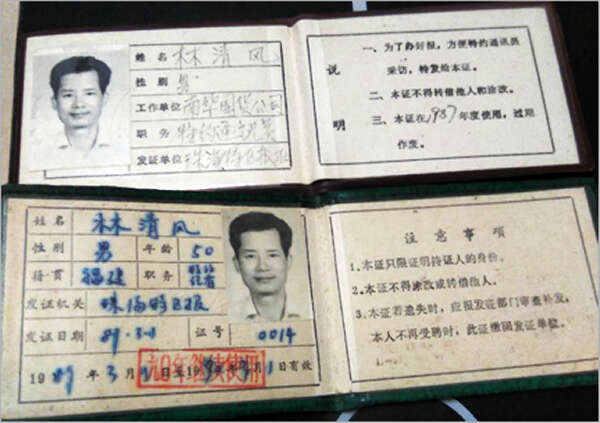 姓名 林清风
性别 男
工作单位 南华国货公司
职务 特约通讯员
发证单位 珠海特区报社
说明
一、为了办好报，方便特约通讯员
采访，特发给本证。
二、本证不得转借他人和涂改。
三、本证在1987年度使用，过期
作废。
姓名 林清风
性别 男 年龄 50
籍贯 福建 职务
发证机关 珠海特区报
发证日期 89·3·1 证号 0014
1989年3月1日至19 年3月1日有效
九〇年继续使用
注意事项
1.本证只限证明持证人的身份。
2.本证不得涂改或转借他人。
3.本证若遗失时，应报发证部门审查补发，
本人不再受聘时，此证缴回发证单位。